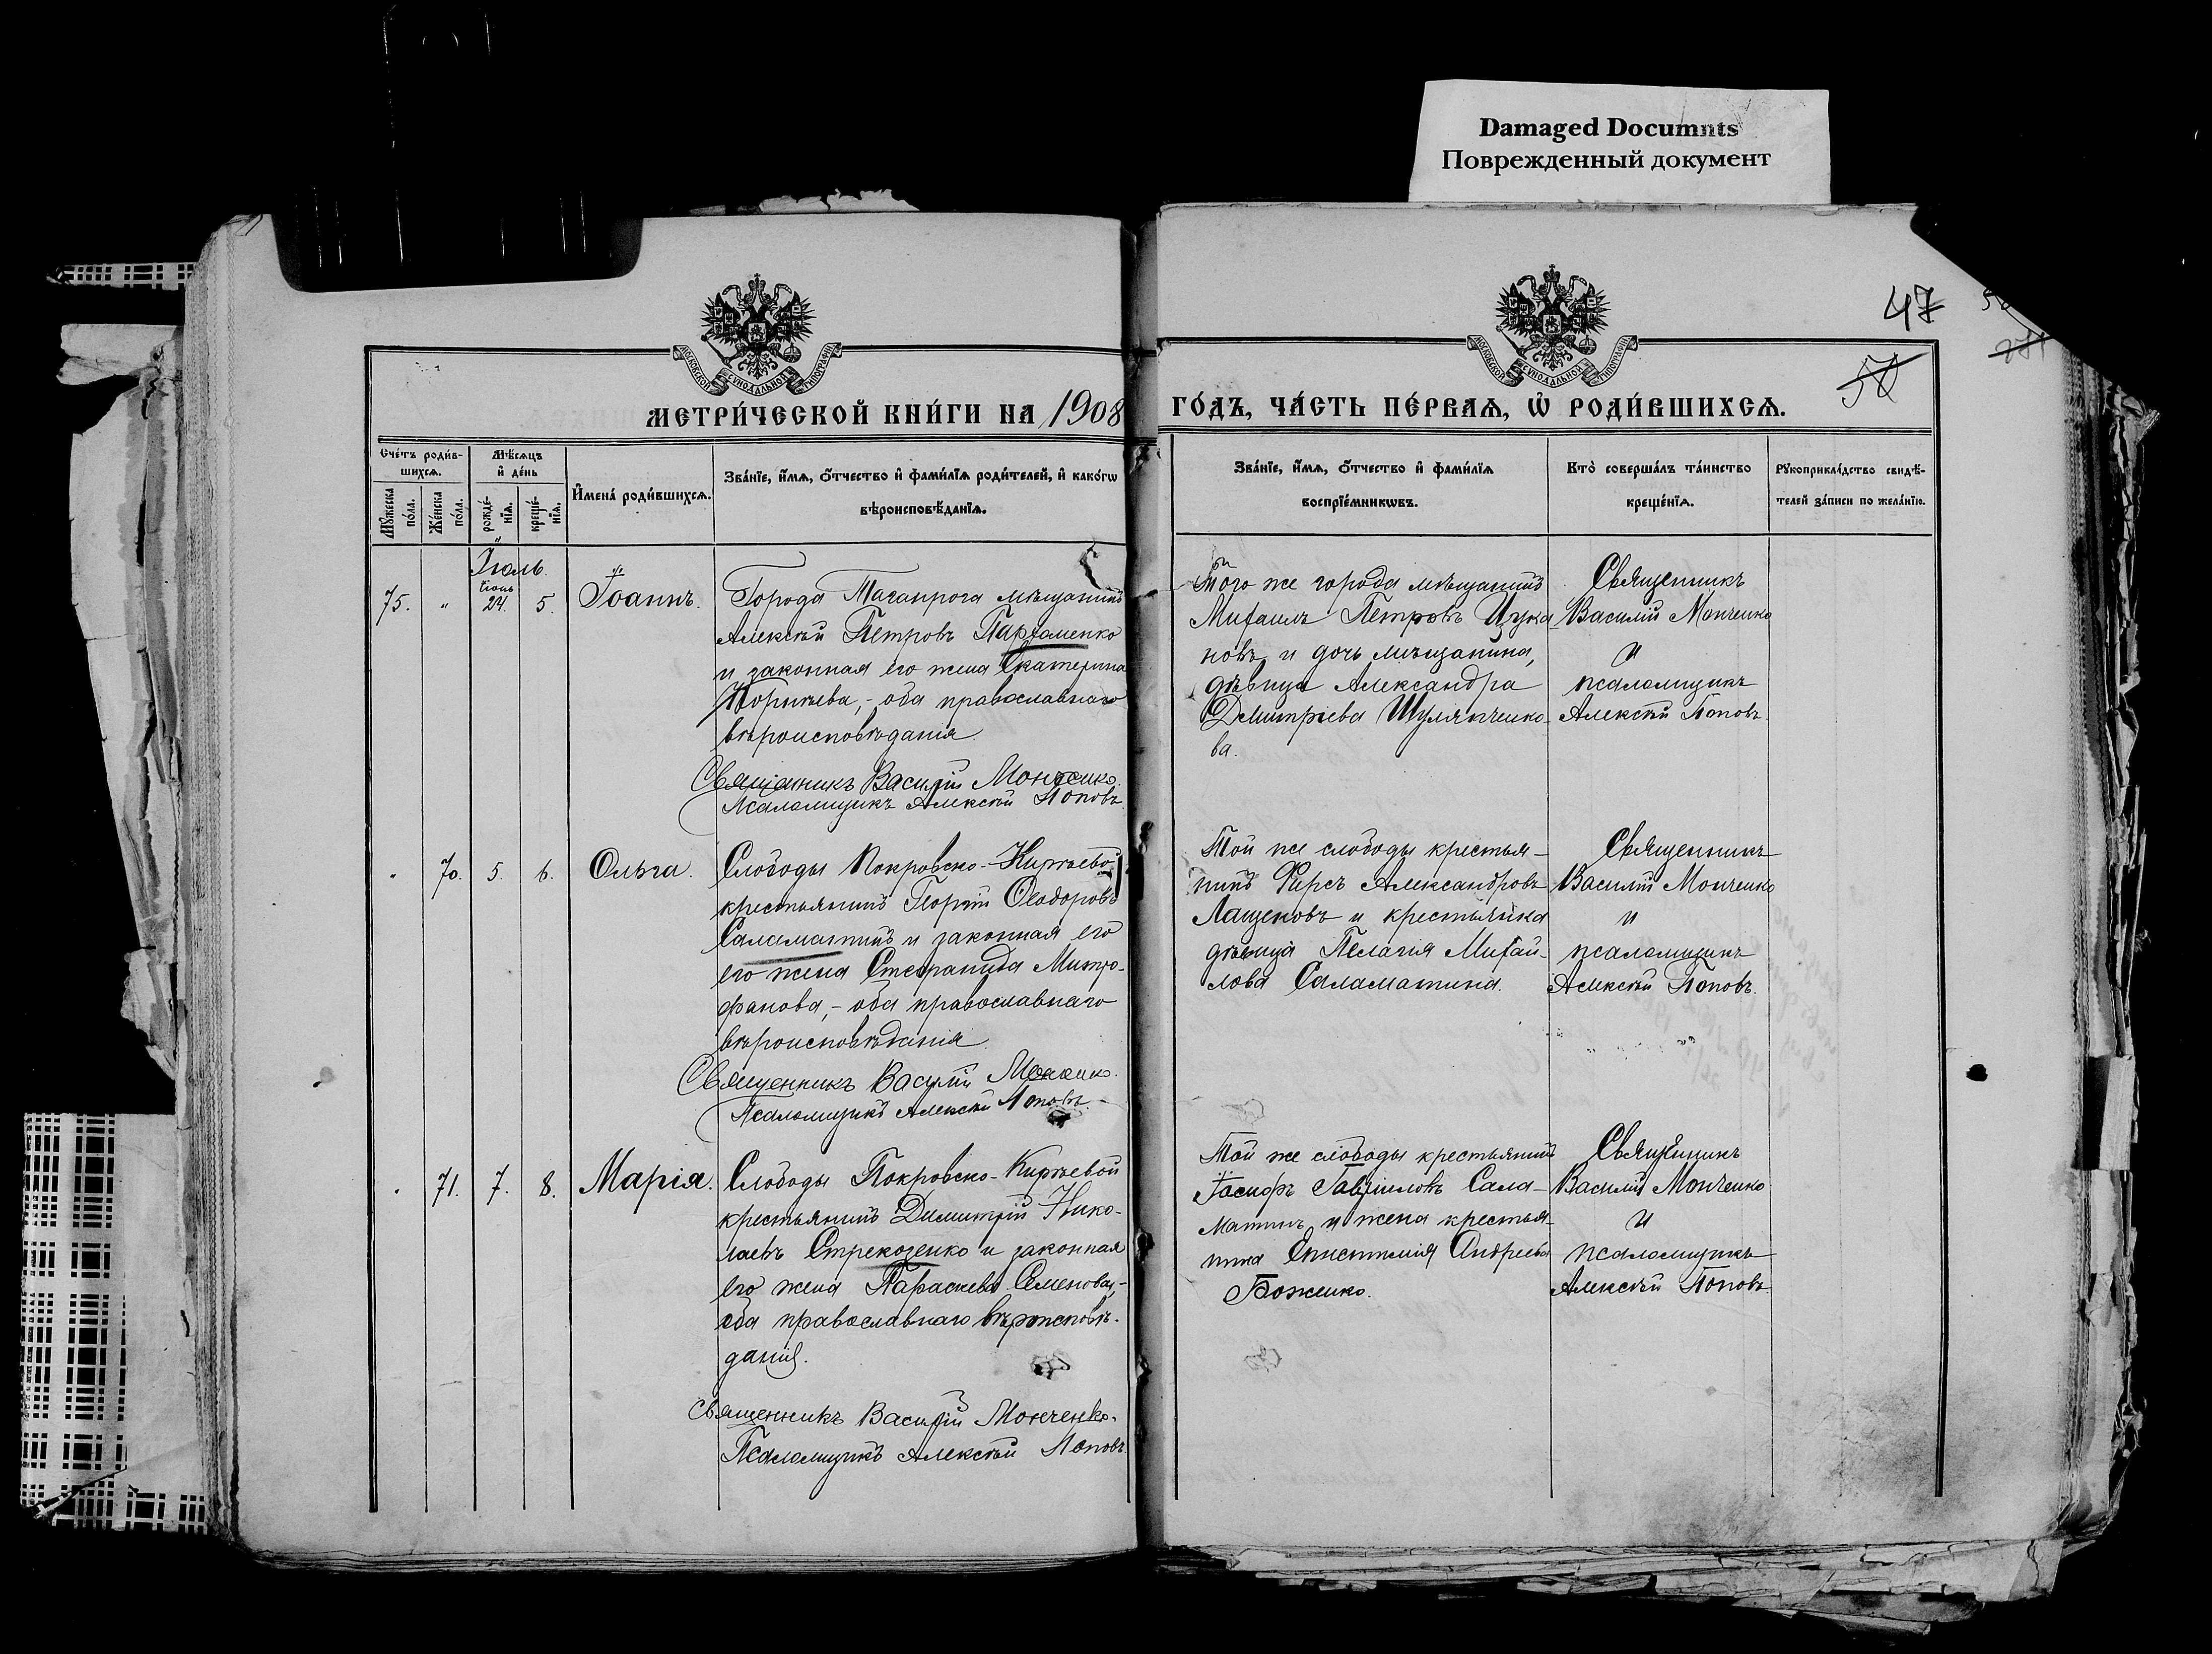 Damaged Documnts
Поврежденный документ
47
МОСКОВСКОЙ СУНОДАЛЬНОЙ ТИПОГРАФІИ
МОСКОВСКОЙ СУНОДАЛЬНОЙ ТИПОГРАФІИ
МЕТРИ́ЧЕСКОЙ КНИ́ГИ НА 1908
ГО́ДЪ, ЧА́СТЬ ПЕ́РВАѦ, Ѡ҆ РОДИ́ВШИХСѦ.
Сче́тъ роди́в-
шихсѧ.
Мꙋ́жеска по́ла.
Же́нска по́ла.
Мѣ́сѧцъ
и҆ де́нь
рожде́-
нїѧ.
креще́-
нїѧ.
И҆мена̀ роди́вшихсѧ.
Зва́нїе, и҆́мѧ, ѻ҆́тчество и҆ фами́лїѧ роди́телей, и҆ како́гѡ
вѣроисповѣ́данїѧ.
Зва́нїе, и҆́мѧ, ѻ҆́тчество и҆ фами́лїѧ
воспрїе́мникѡвъ.
Кто̀ соверша́лъ та́инство
креще́нїѧ.
Рꙋкоприкла́дство свидѣ́-
телей за́писи по жела́нїю.
Іюль.
75. " Іюнь 24. 5. Іоаннъ.
Города Таганрога мѣщанинъ
Алексѣй Петровъ Пархоменко
и законная его жена Екатерина
оба православнаго
вѣроисповѣданія.
Священникъ Василій Монченко.
Псаломщикъ Алексѣй Поповъ.
Того же города мѣщанинъ
Михаилъ Петровъ
новъ и дочь мѣщанина,
дѣвица Александра
Димитріева Шулянченко-
ва.
Священникъ
Василій Монченко
и
псаломщикъ
Алексѣй Поповъ.
" 70. 5. 6. Ольга.
Слободы Покровско-Кирѣевой
крестьянинъ Ѳеодоровъ
Саламатинъ и законная его
его жена Стефанида Митро-
фанова, - оба православнаго
вѣроисповѣданія.
Священникъ Василій Монченко.
Псаломщикъ Алексѣй Поповъ.
Той же слободы крестья-
нинъ Фирсъ Александровъ
Лащеновъ и крестьянка
дѣвица Пелагія Михай-
лова Саламатина.
Священникъ
Василій Монченко
и
псаломщикъ
Алексѣй Поповъ.
" 71. 7. 8. Марія.
Слободы Покровско-Кирѣевой
крестьянинъ Димитрій Нико-
лаевъ Стрекозенко и законная
его жена Параскева Семенова, -
оба православнаго вѣроисповѣ-
данія.
Священникъ Василій Монченко.
Псаломщикъ Алексѣй Поповъ.
Той же слободы крестьянинъ
Іосифъ Гавріиловъ Сала-
матинъ и жена крестья-
нина Епистимія Андреева
Боженко.
Священникъ
Василій Монченко
и
псаломщикъ
Алексѣй Поповъ.